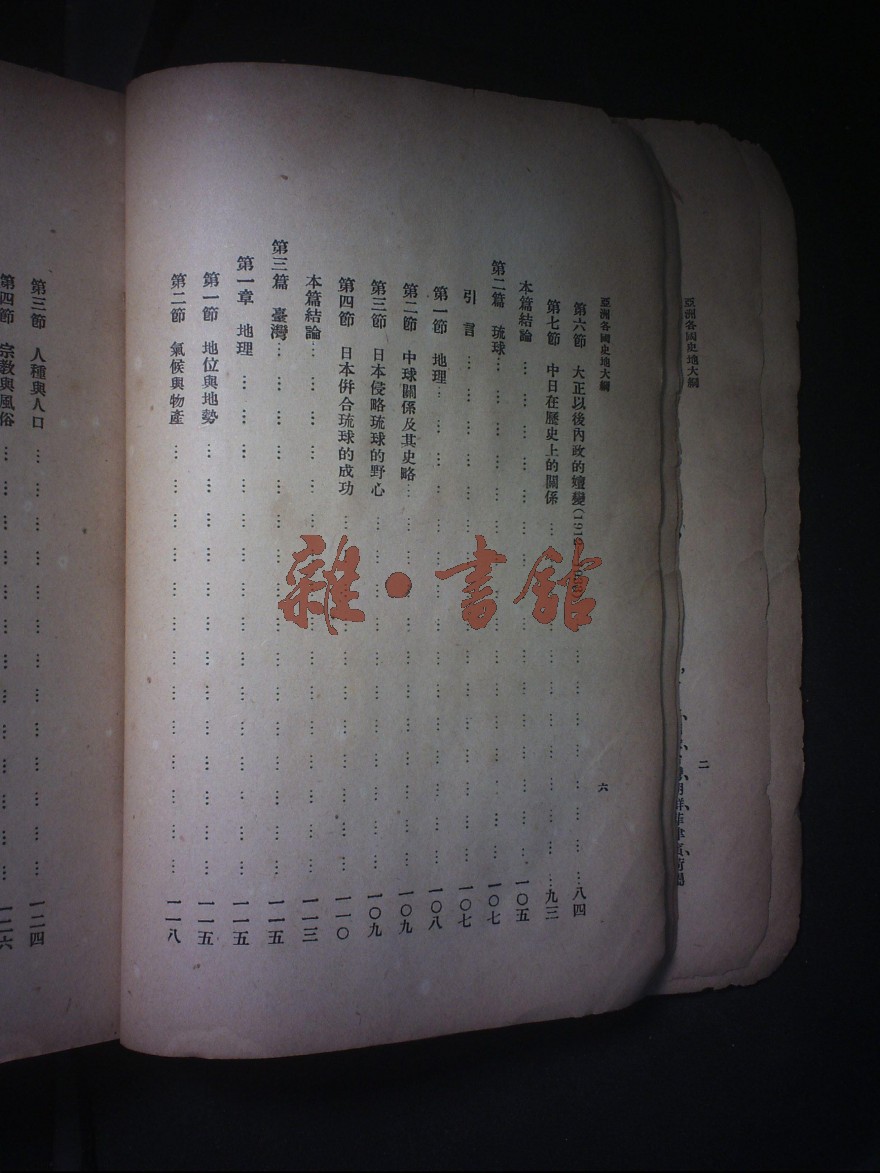 亞洲各國史地大綱
二
亞洲各國史地大綱
六
第六節 大正以後內政的嬗變(191 … … … … … … … 八四
第七節 中日在歷史上的關係 … … … … … … … … … … … 九三
本篇結論 … … … … … … … … … … … … … … … 一〇五
第二篇 琉球 … … … … … … … … … … … … … … … 一〇七
引言 … … … … … … … … … … … … … … … 一〇七
第一節 地理 … … … … … … … … … … … … … … 一〇八
第二節 中球關係及其史略 … … … … … … … … … … … 一〇九
第三節 日本侵略琉球的野心 … … … … … … … … … … … 一〇九
第四節 日本併合琉球的成功 … … … … … … … … … … … 一一〇
本篇結論 … … … … … … … … … … … … … … … 一一三
第三篇 臺灣 … … … … … … … … … … … … … … … 一一五
第一章 地理 … … … … … … … … … … … … … … … 一一五
第一節 地位與地勢 … … … … … … … … … … … … … 一一五
第二節 氣候與物產 … … … … … … … … … … … … … 一一八
第三節 人種與人口 … … … … … … … … … … … … … 一二四
第四節 宗教與風俗 … … … … … … … … … … … … … 一二六
雜·書館